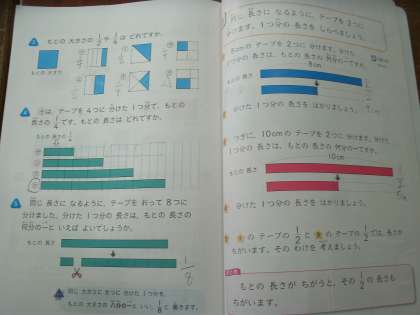 もとの 大きさの 1/2や 1/4は どれですか。
もとの 大きさ
㋐は、テープを 4つに 分けた 1つ分で、もとの
長さの 1/4です。もとの 長さは どれですか。
もとの 長さの 1/4
同じ 長さに なるように、テープを おって 8つに
分けました。分けた 1つ分の 長さは、もとの 長さの
何分の一と いえば よいでしょうか。
もとの 長さ
1/8
同じ 大きさに 8つに 分けた 1つ分を、
もとの 大きさの 八分の一と いい、1/8と 書きます。
同じ 長さに なるように、テープを 2つに
分けます。1つ分の 長さを しらべましょう。
8cmの テープを 2つに 分けます。分けた
1つ分の 長さは、もとの 長さの 何分の一ですか。
8cm
もとの 長さ
分けた 1つ分の 長さを はかりましょう。
つぎに、10cmの テープを 2つに 分けます。分けた
1つ分の 長さは、もとの 長さの 何分の一ですか。
10cm
もとの 長さ
分けた 1つ分の 長さを はかりましょう。
の テープの 1/2と の テープの 1/2では、長さが
ちがいます。その わけを 考えましょう。
もとの 長さが ちがうと、その 1/2の 長さも
ちがいます。